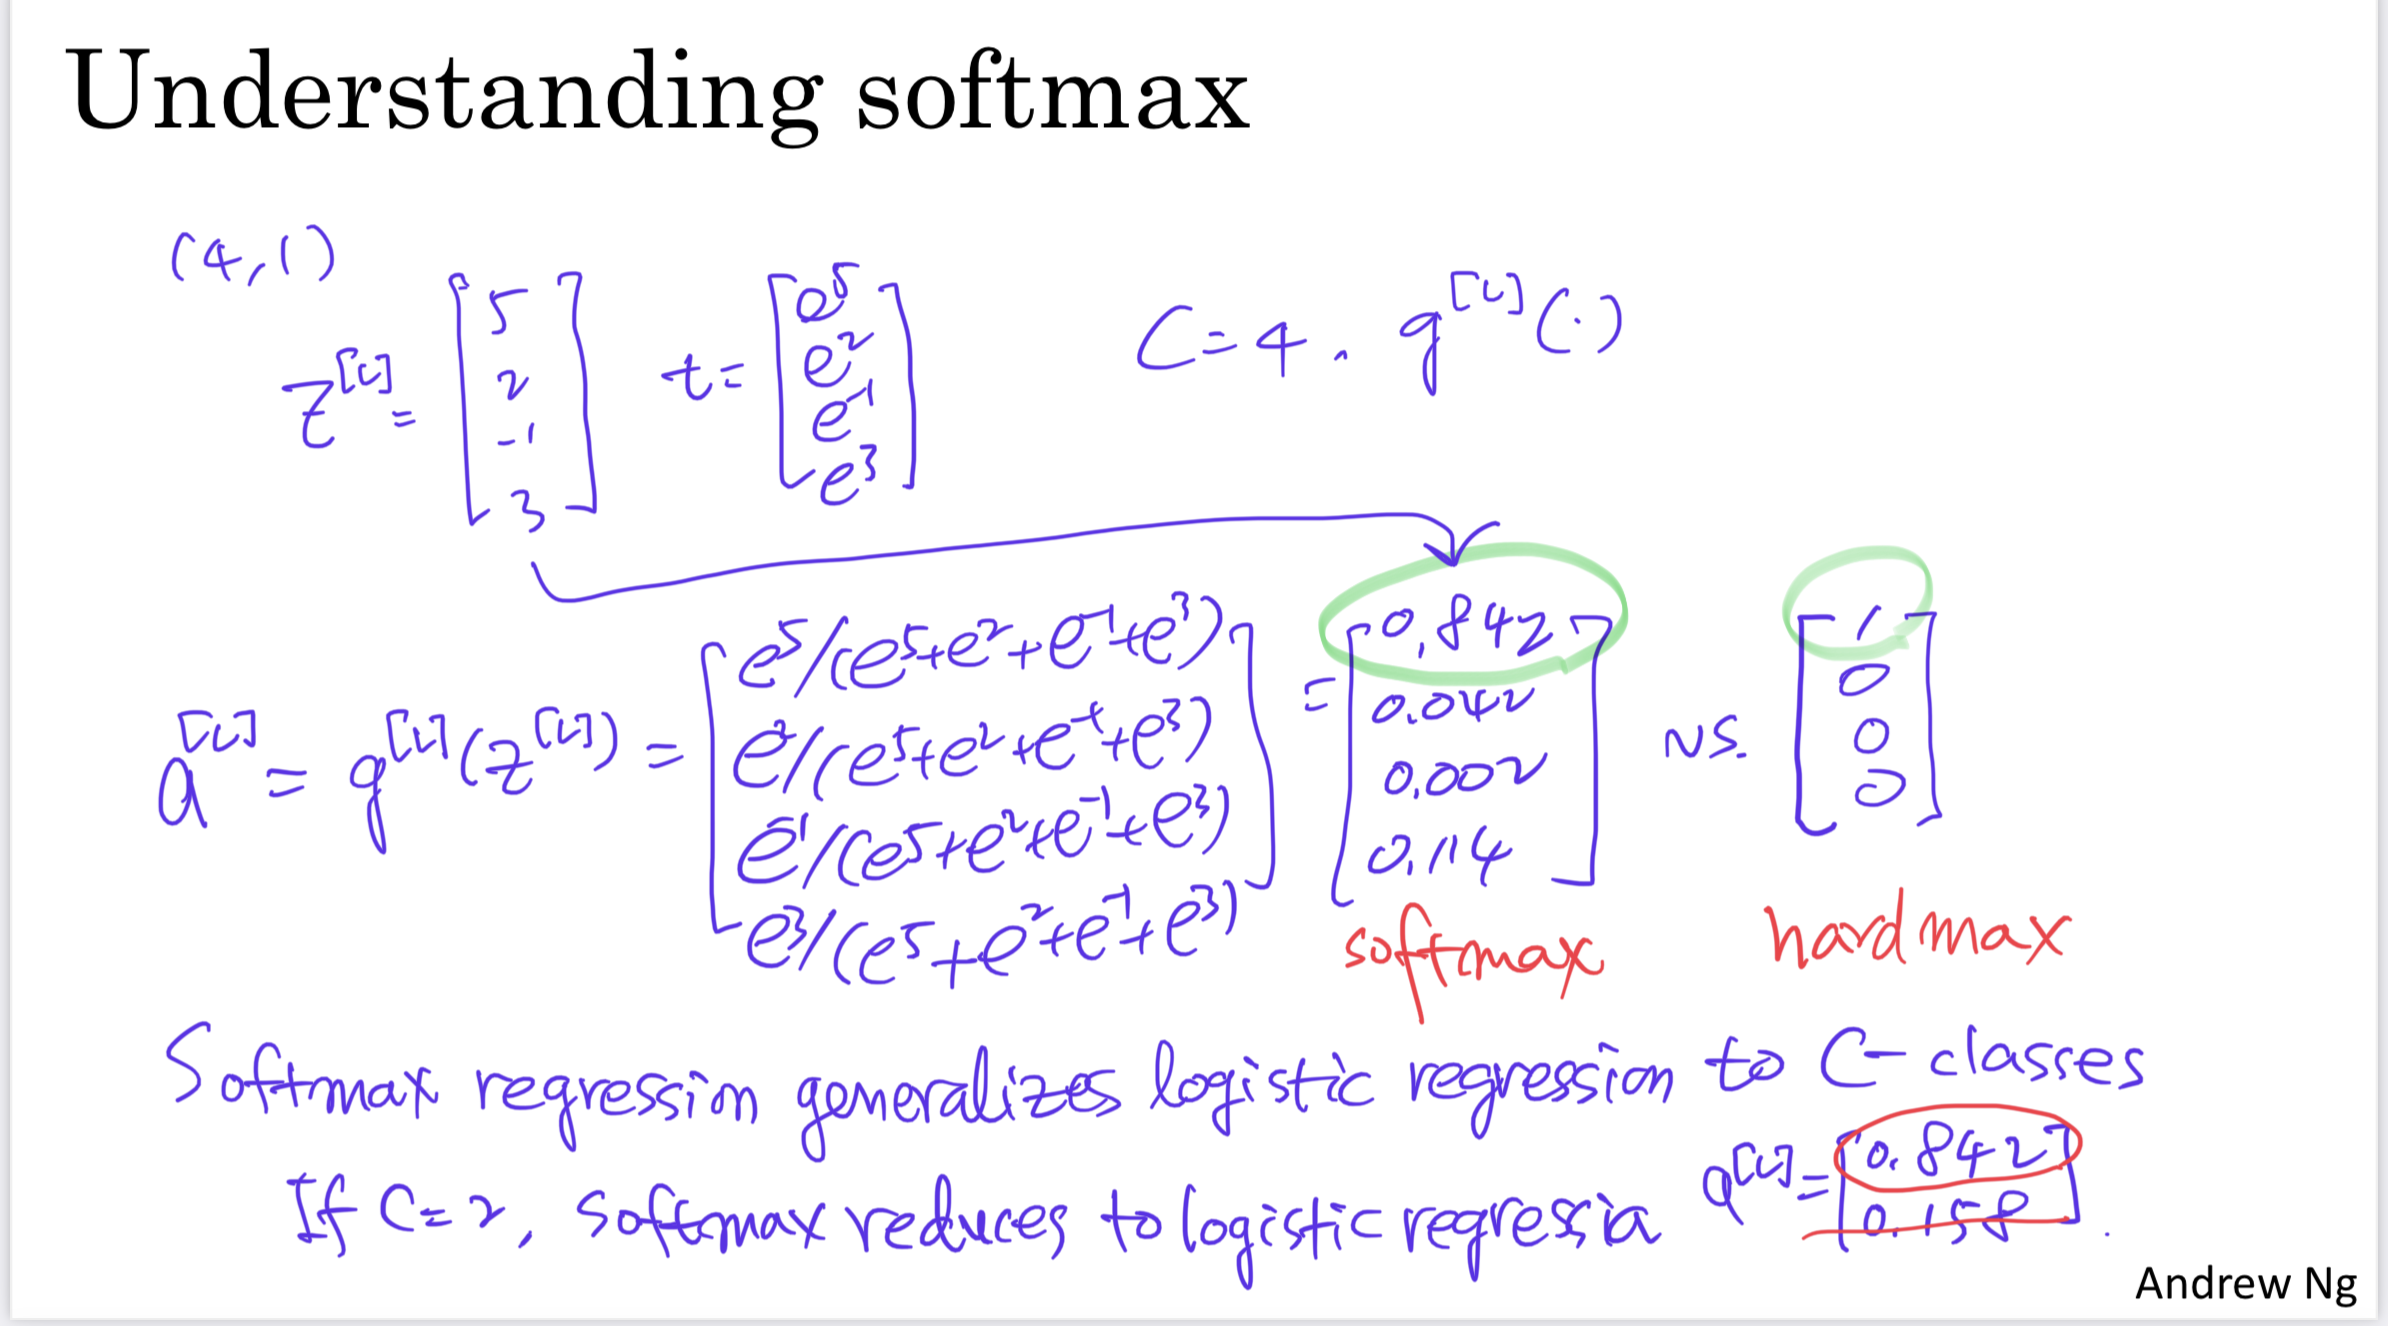 Understanding softmax
(4,1)
z^[L] = [5 2 -1 3] t = [e^5 e^2 e^-1 e^3] C=4, g^[L](·)
a^[L] = g^[L](z^[L]) = [e^5/(e^5+e^2+e^-1+e^3) e^2/(e^5+e^2+e^-1+e^3) e^-1/(e^5+e^2+e^-1+e^3) e^3/(e^5+e^2+e^-1+e^3)] = [0.842 0.042 0.002 0.114] vs. [1 0 0 0]
softmax hardmax
Softmax regression generalizes logistic regression to C-classes
If C=2, softmax reduces to logistic regression a^[L] = [0.842 0.158].
Andrew Ng